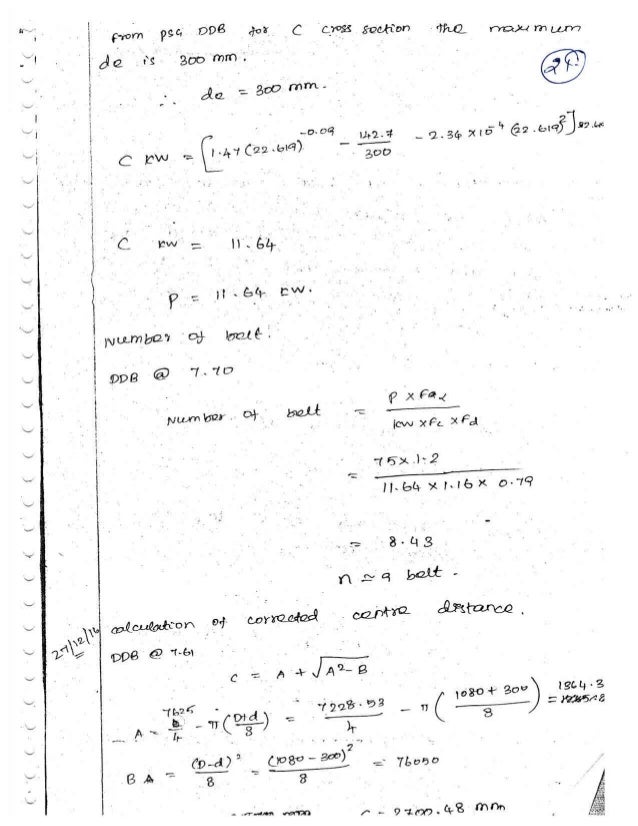 from PSG DDB for C cross section the maximum
de is 300 mm.
∴ de = 300 mm.
C kW = [1.47 (22.619)^-0.09 - 142.7/300 - 2.34 × 10^-4 (22.619)^2]
C kW = 11.64
P = 11.64 kW.
Number of belt:
DDB @ 7.70
Number of belt = P × Fa / kW × Fc × Fd
= 75 × 1.2 / 11.64 × 1.16 × 0.79
= 8.43
n ≃ 9 belt.
27/12/16
calculation of corrected centre distance.
DDB @ 7.61
C = A + √A²-B
A = 7625/4 - π (D+d/8) = 7228.53/4 - π (1080 + 300/8) = 1364.3
B = (D-d)²/8 = (1080-300)²/8 = 76050
C = 2700.48 mm